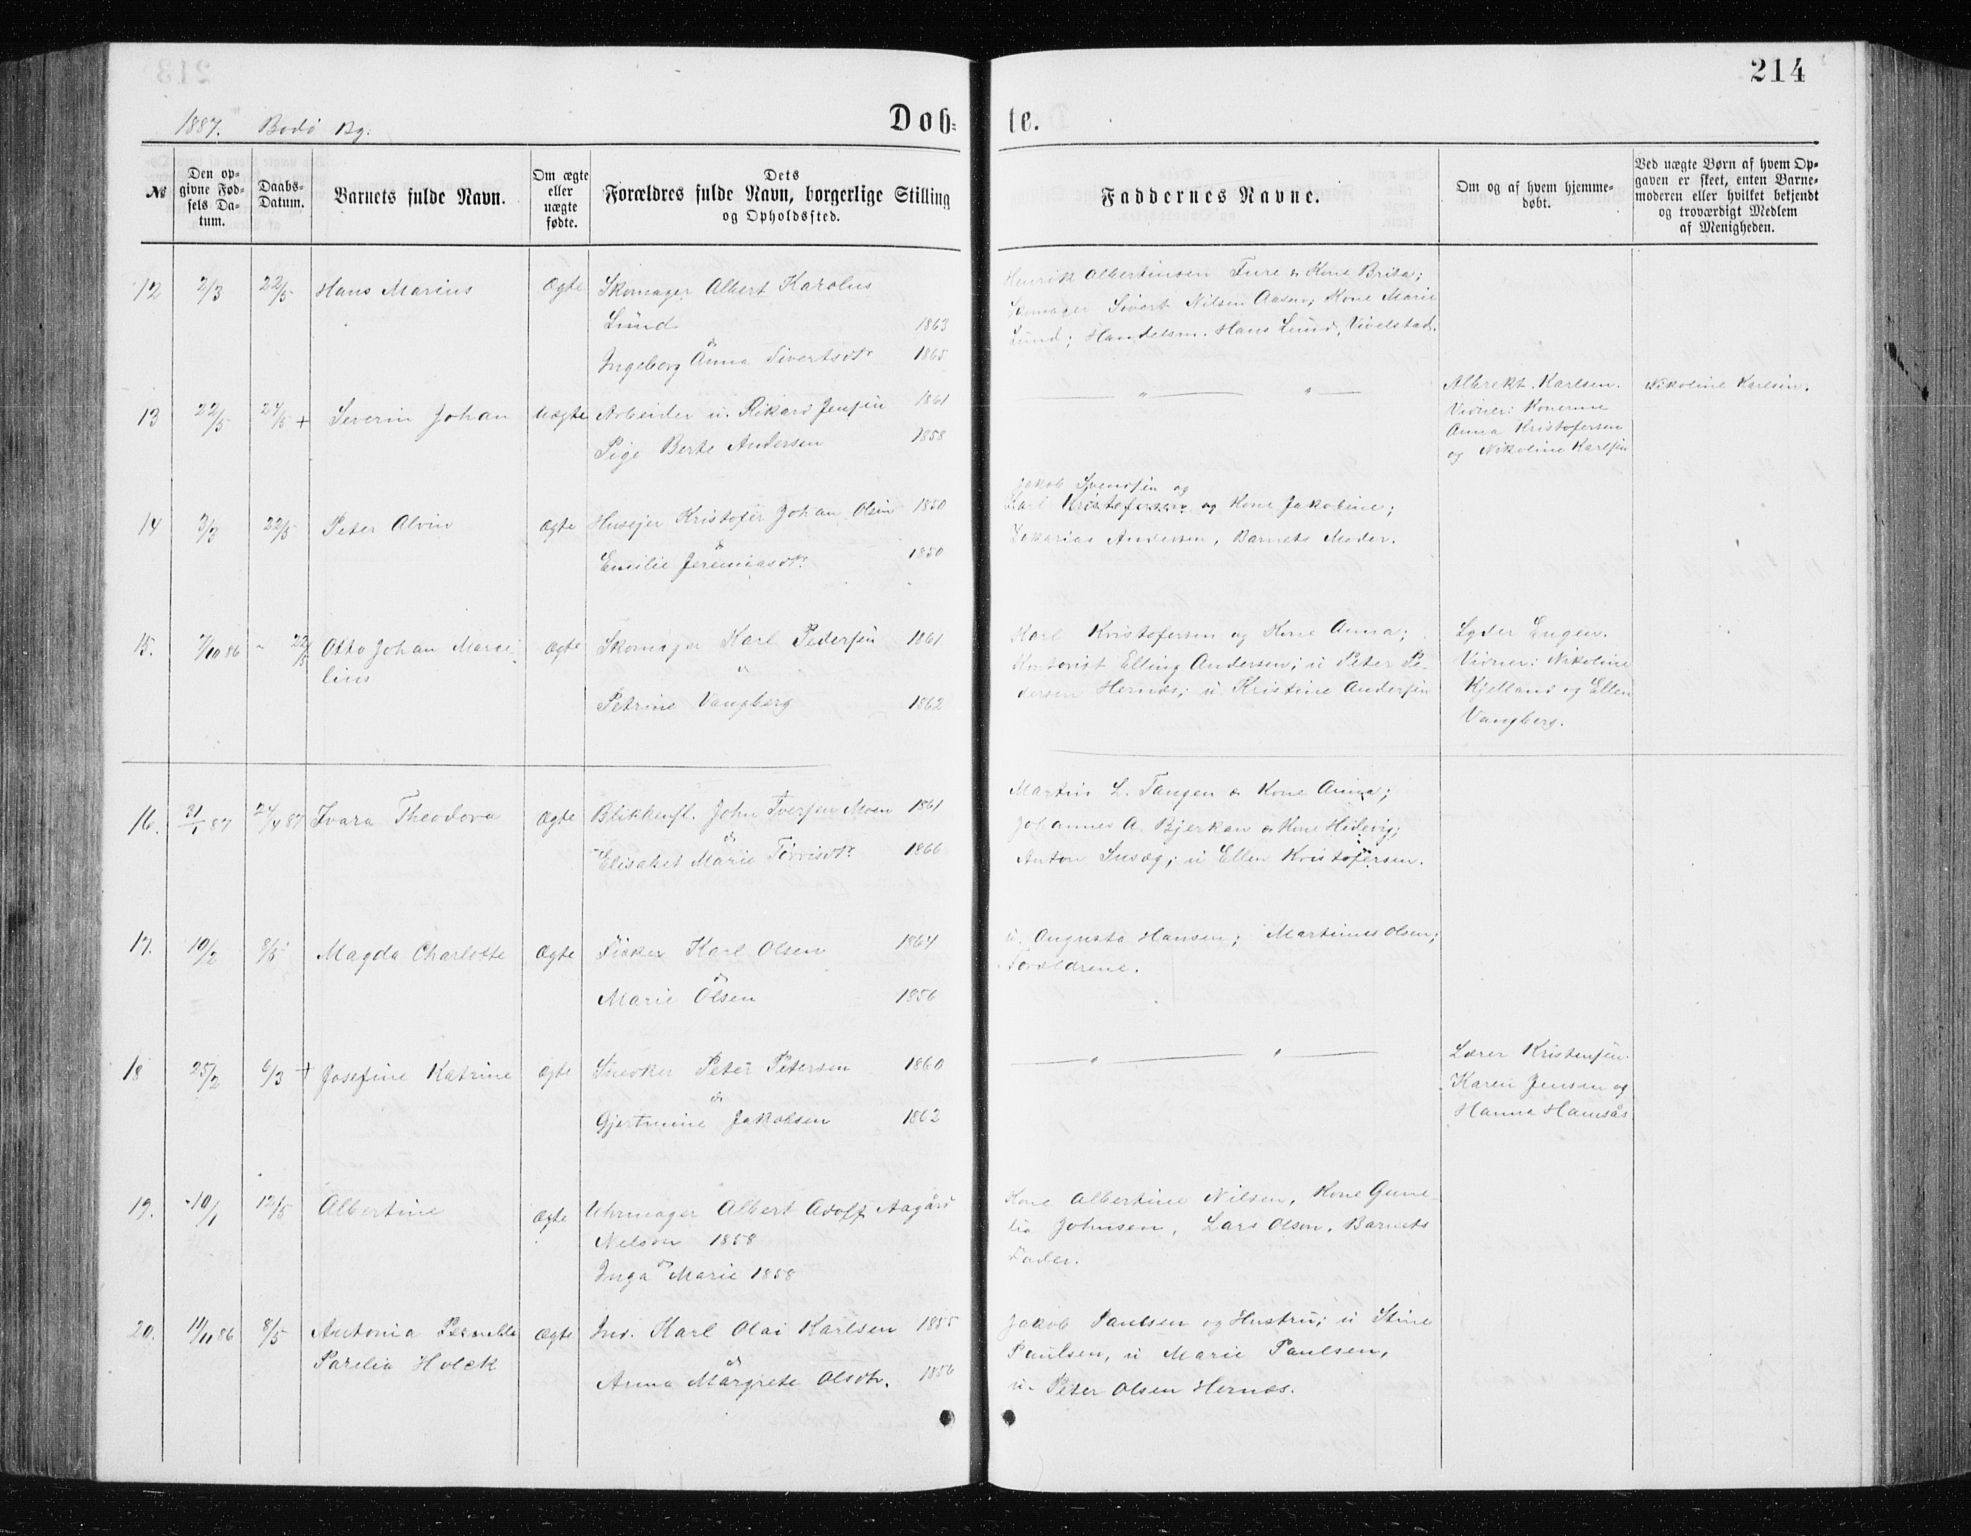 214
1887. Bodø By.
Døb- te.
№
Den op-
givne Fød-
sels Da-
tum.
Daabs-
Datum.
Barnets fulde Navn.
Om ægte
eller
uægte
fødte.
Dets
Forældres fulde Navn, borgerlige Stilling
og Opholdssted.
Faddernes Navne.
Om og af hvem hjemme-
døbt.
Ved uægte Børn af hvem Op-
gaven er skeet, enten Barne-
moderen eller hvilket bekjendt
og troværdigt Medlem
af Menigheden.
12 2/3 22/5 Hans Marius Ægte Skomager Albert Karolus
Lund 1863
&
Ingeborg Anna Sivertsdtr 1865
Henrik Albertinsen Fure & Kone Brita;
Skomager Sivert Nilsen Aasen; Kone Marie
Lund; Handelsm. Hans Lund,
13 22/5 24/5 + Severin Johan Uægte Arbeider u. Rikard Jensen 1861
Pige Berte Andersen 1858
— " — " —
Albrekt Karlsen.
Vidner: Konerne
Anna Kristofersen
og Nikoline Karlsen
Nikoline Karlsen.
14 3/3 22/5 Peter Alvin Ægte Huseier Kristofer Johan Olsen 1850
&
Emilie Jeremiasdtr 1850
Jakob Svendsen og
Karl Kristofersen og Kone Jakobine;
Zakarias Andersen, Barnets Moder.
15. 7/10 86 22/5 Otto Johan Marse
lius Ægte Skomager Karl Pedersen 1861
&
Petrine Vangberg 1862
Karl Kristofersen og Kone Anna;
Kontorist Elling Andersen; u Peter Pe-
dersen Hernes; u. Kristine Andersen
Lyder Engen.
Vidner: Nikoline
Kjelland og Ellen
Vangberg.
16. 31/1 87 24/4 87 Ivara Theodora Ægte Blikkensl. John Iversen Moen 1861
&
Elisabet Marie 1866
Martin L. Tangen & Kone Anna;
Johannes A. Bjerkan & Kone Hedevig;
Anton u Ellen Kristofersen.
17. 19/2 8/5 Magda Charlotte Ægte Fisker Karl Olsen 1864
&
Marie Olsen 1856
u. Augusta Hansen; Martinus Olsen;
Forældrene.
18 25/2 6/3 + Josefine Katrine Ægte Snedker Peter Petersen 1860
&
Gjertmine Jakobsen 1862
— " — " —
Lærer Kristensen.
Karen Jensen og
Hanna Hamsås
19. 10/1 12/5 Albertine Ægte Uhrmager Albert Adolf Aagård
Nelson 1858
&
Inga Marie 1858
Kone Albertine Nilsen, Kone Gune-
lia Johnsen, Lars Olsen, Barnets
Fader.
20. 19/11 86 8/5 Antonia Pernella
Parelia Holck Ægte Ind. Karl Olai Karlsen 1855
&
Anna Margrete Olsdtr. 1856
Jakob Paulsen og Hustru; u Stine
Paulsen, u Marie Paulsen,
u. Peter Olsen Hernes.